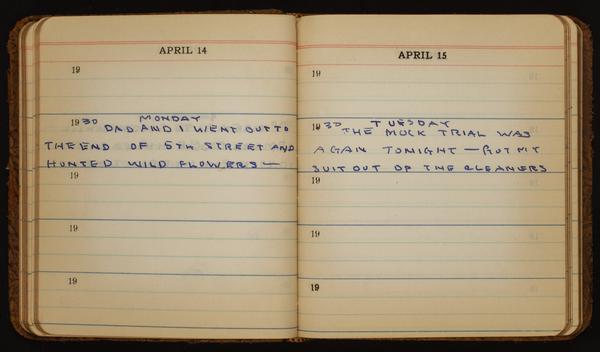 APRIL 14
19
1930 MONDAY
DAD AND I WENT OUT TO
THE END OF 5TH STREET AND
HUNTED WILD FLOWERS —
19
19
19
APRIL 15
19
1930 TUESDAY
THE MOCK TRIAL WAS
AGAIN TONIGHT — GOT MY
SUIT OUT OF THE CLEANERS
19
19
19